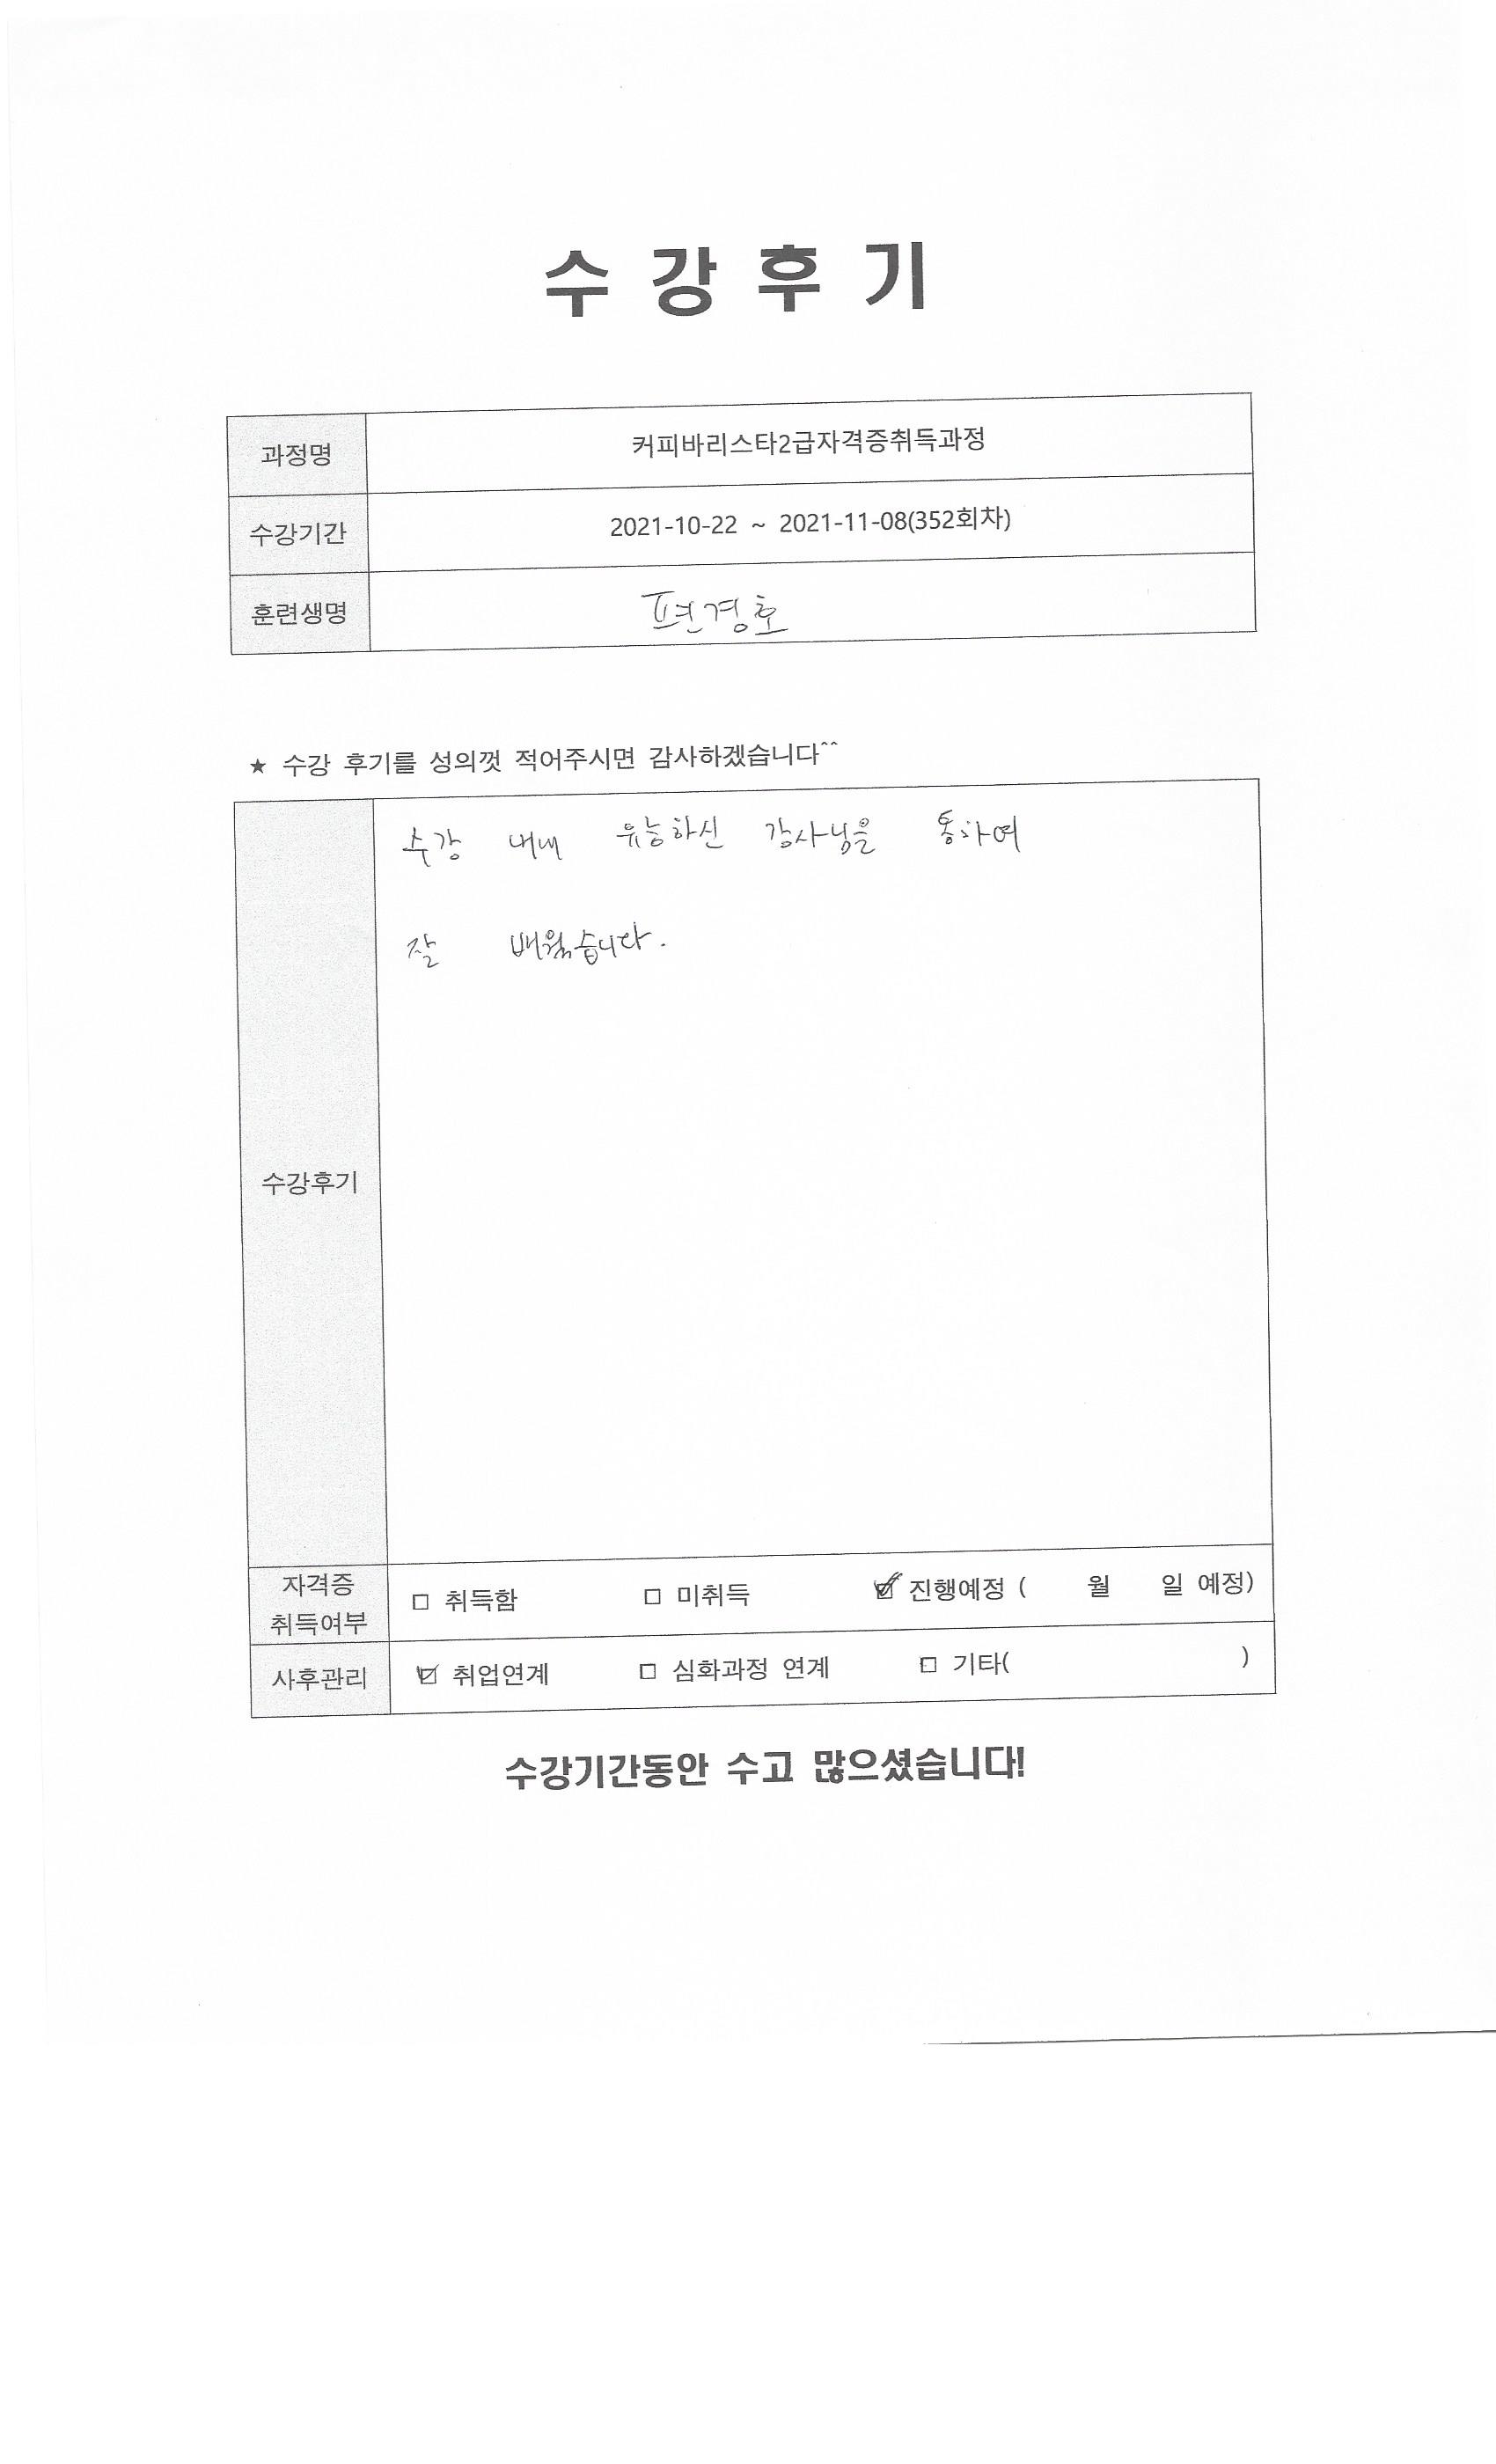 수 강 후 기
과정명 커피바리스타2급자격증취득과정
수강기간 2021-10-22 ~ 2021-11-08(352회차)
훈련생명 편경호
★ 수강 후기를 성의껏 적어주시면 감사하겠습니다^^
수강 내내 유능하신 강사님을 통하여
잘 배웠습니다.
수강후기
자격증
취득여부
□ 취득함 □ 미취득 ☑ 진행예정 ( 월 일 예정)
사후관리 ☑ 취업연계 □ 심화과정 연계 □ 기타( )
수강기간동안 수고 많으셨습니다!